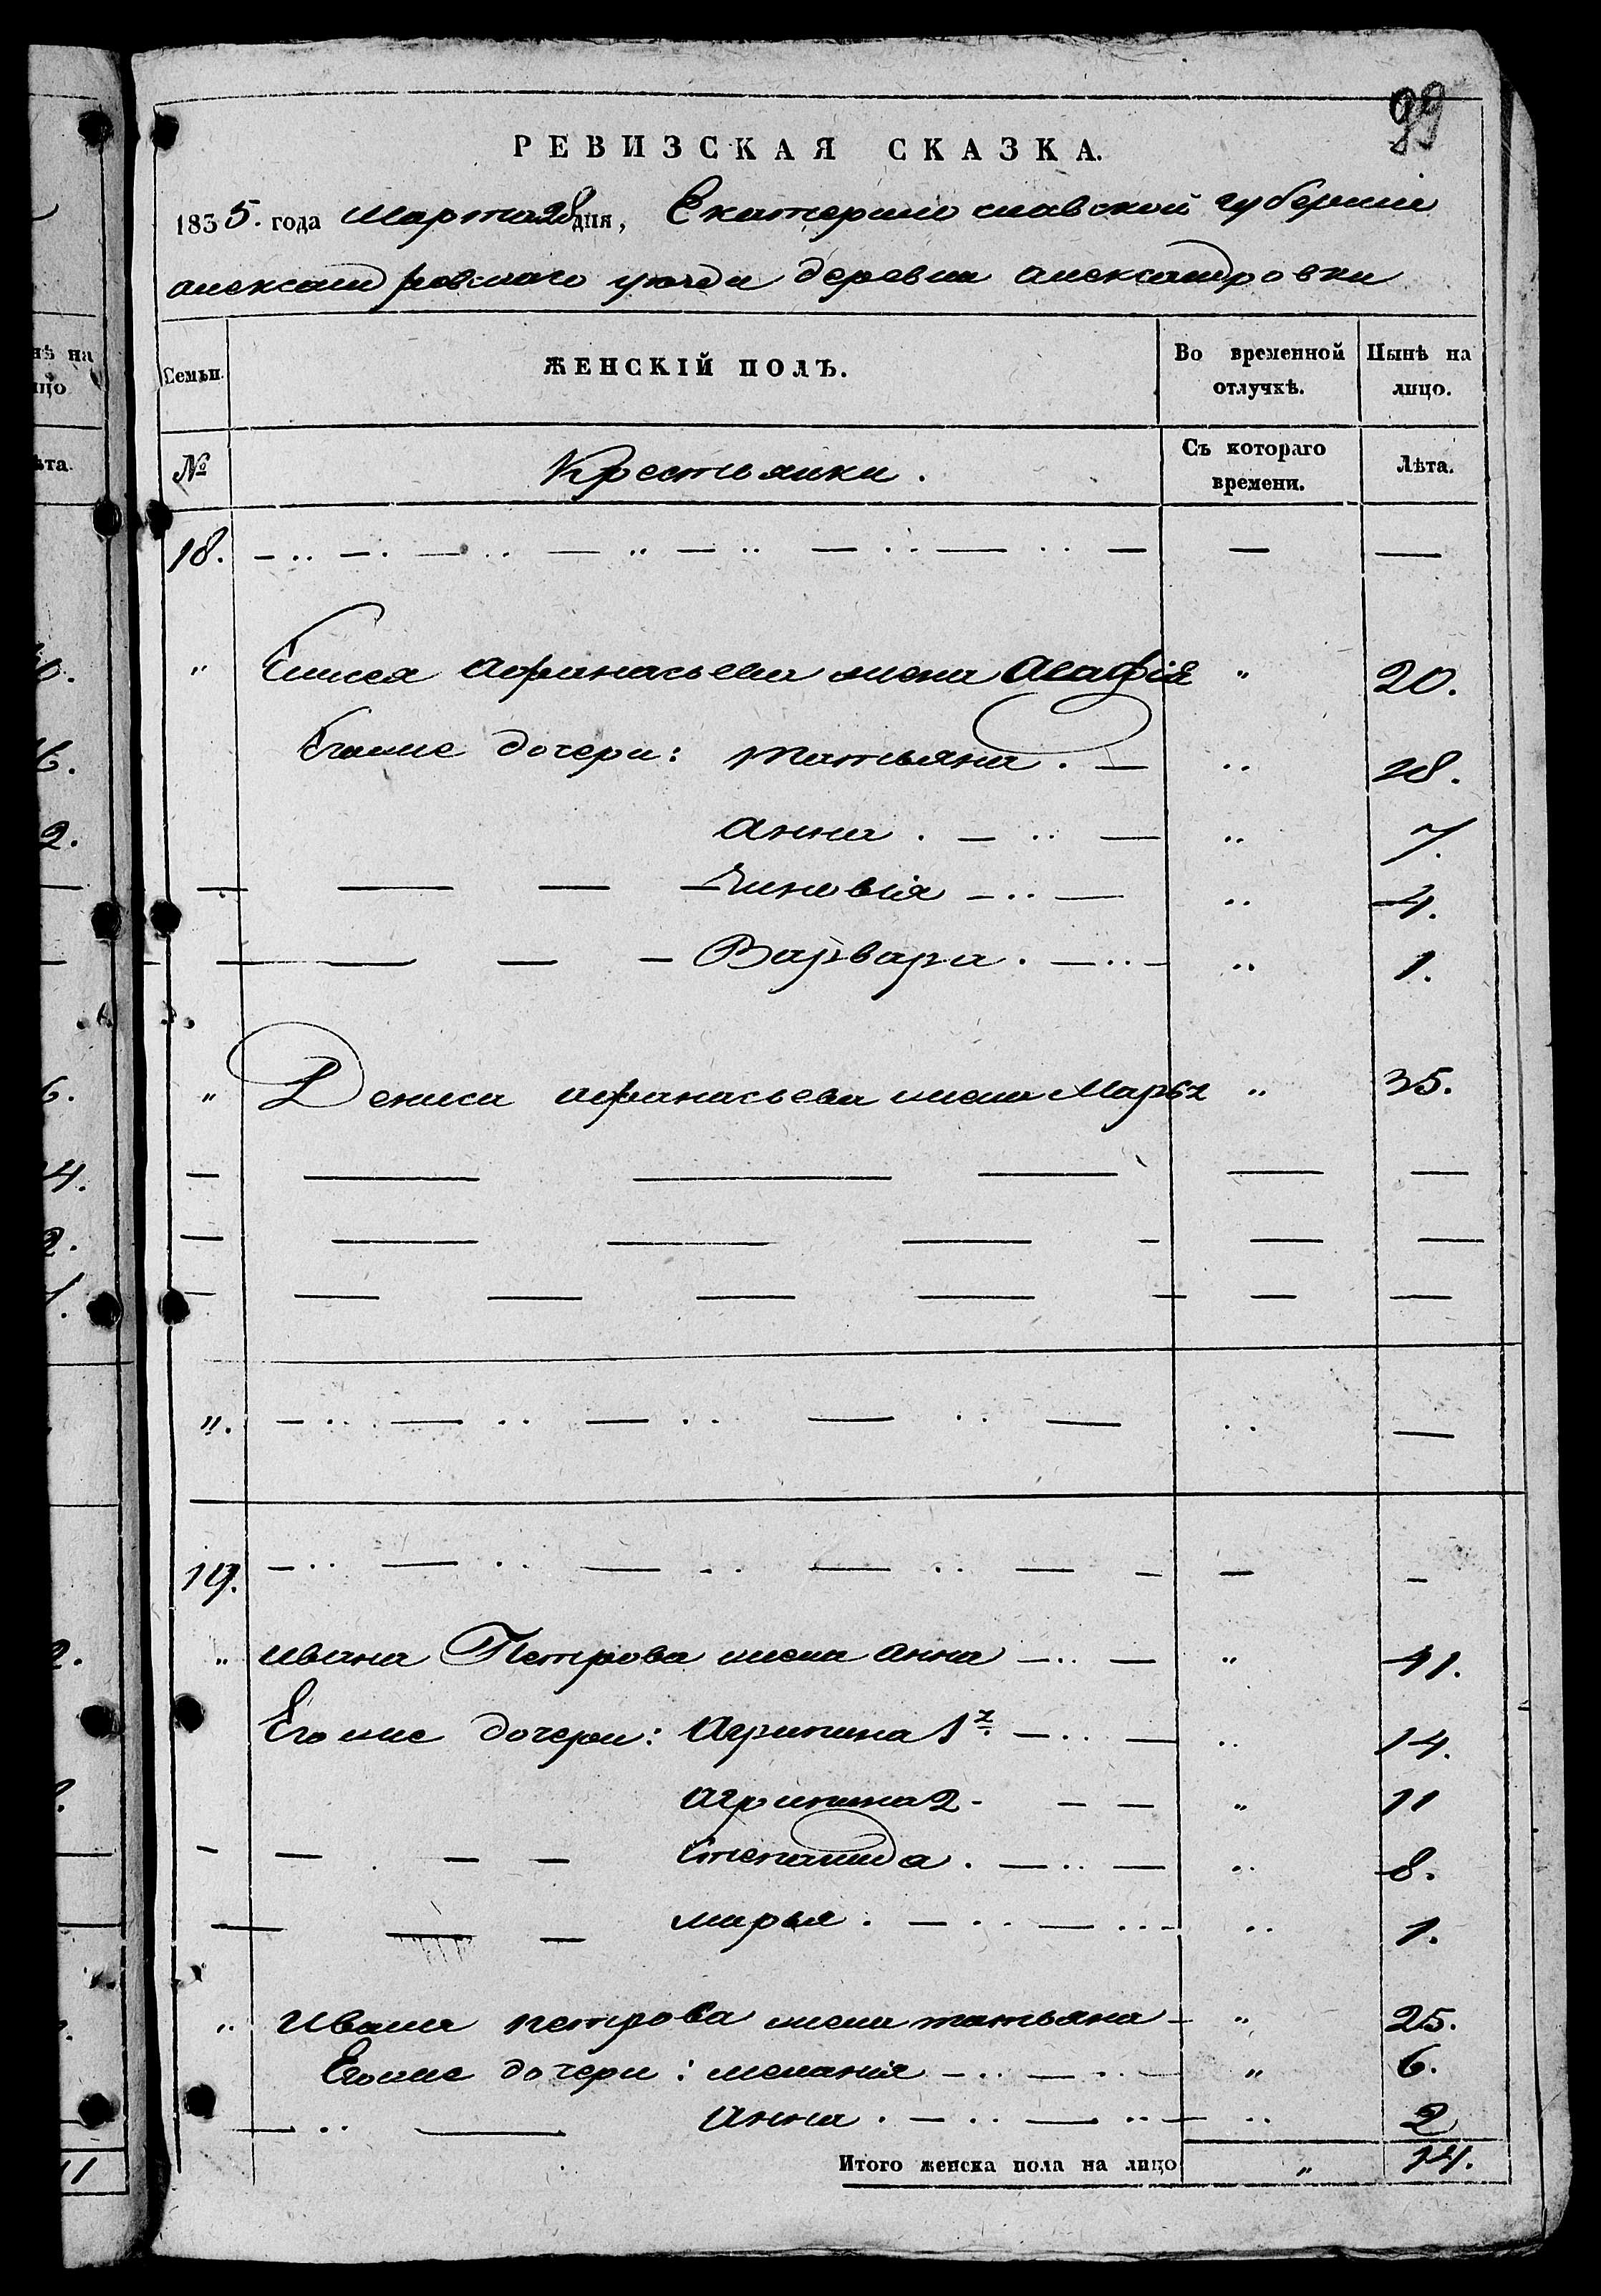 99
РЕВИЗСКАЯ СКАЗКА.
1835. года Марта 28 дня, Екатеринославской губернiи
александровскаго уезда деревни александровки
Семьи. ЖЕНСКIЙ ПОЛЪ. Во временной отлучкѣ. Нынѣ на лицо.
№ Крестьянки. Съ котораго времени. Лѣта.
18. — — —
" Елисея Афанасьева жена Агафiя " 20.
Егоже дочери: татьяна. — " 18.
анна. — " — " 7.
— — — Зиновiя — " — " 4.
— — — Варвара. — " — " 1.
" Дениса афанасьева жена Марья " 35.
". — " — " — " — " — " —
19. — " — " — " — " — — — —
" ивана Петрова жена анна — " — " 41.
Егоже дочери: агрипина 1я — " — " 14.
агрипина 2. — — " 11
— — — — степанида. — " — " 8.
— — — марья. — " — " 1.
" ивана петрова жена татьяна — " 25.
Егоже дочери: меланiя — " — " 6.
— " — анна. — " — " — " 2
Итого женска пола на лицо " 14.
нѣ на
ицо
ѣта.
6.
2.
6.
4.
2.
1.
2.
11